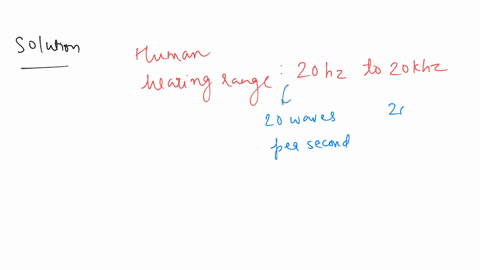 Solution
Human
hearing range : 20hz to 20khz
20 waves
per second